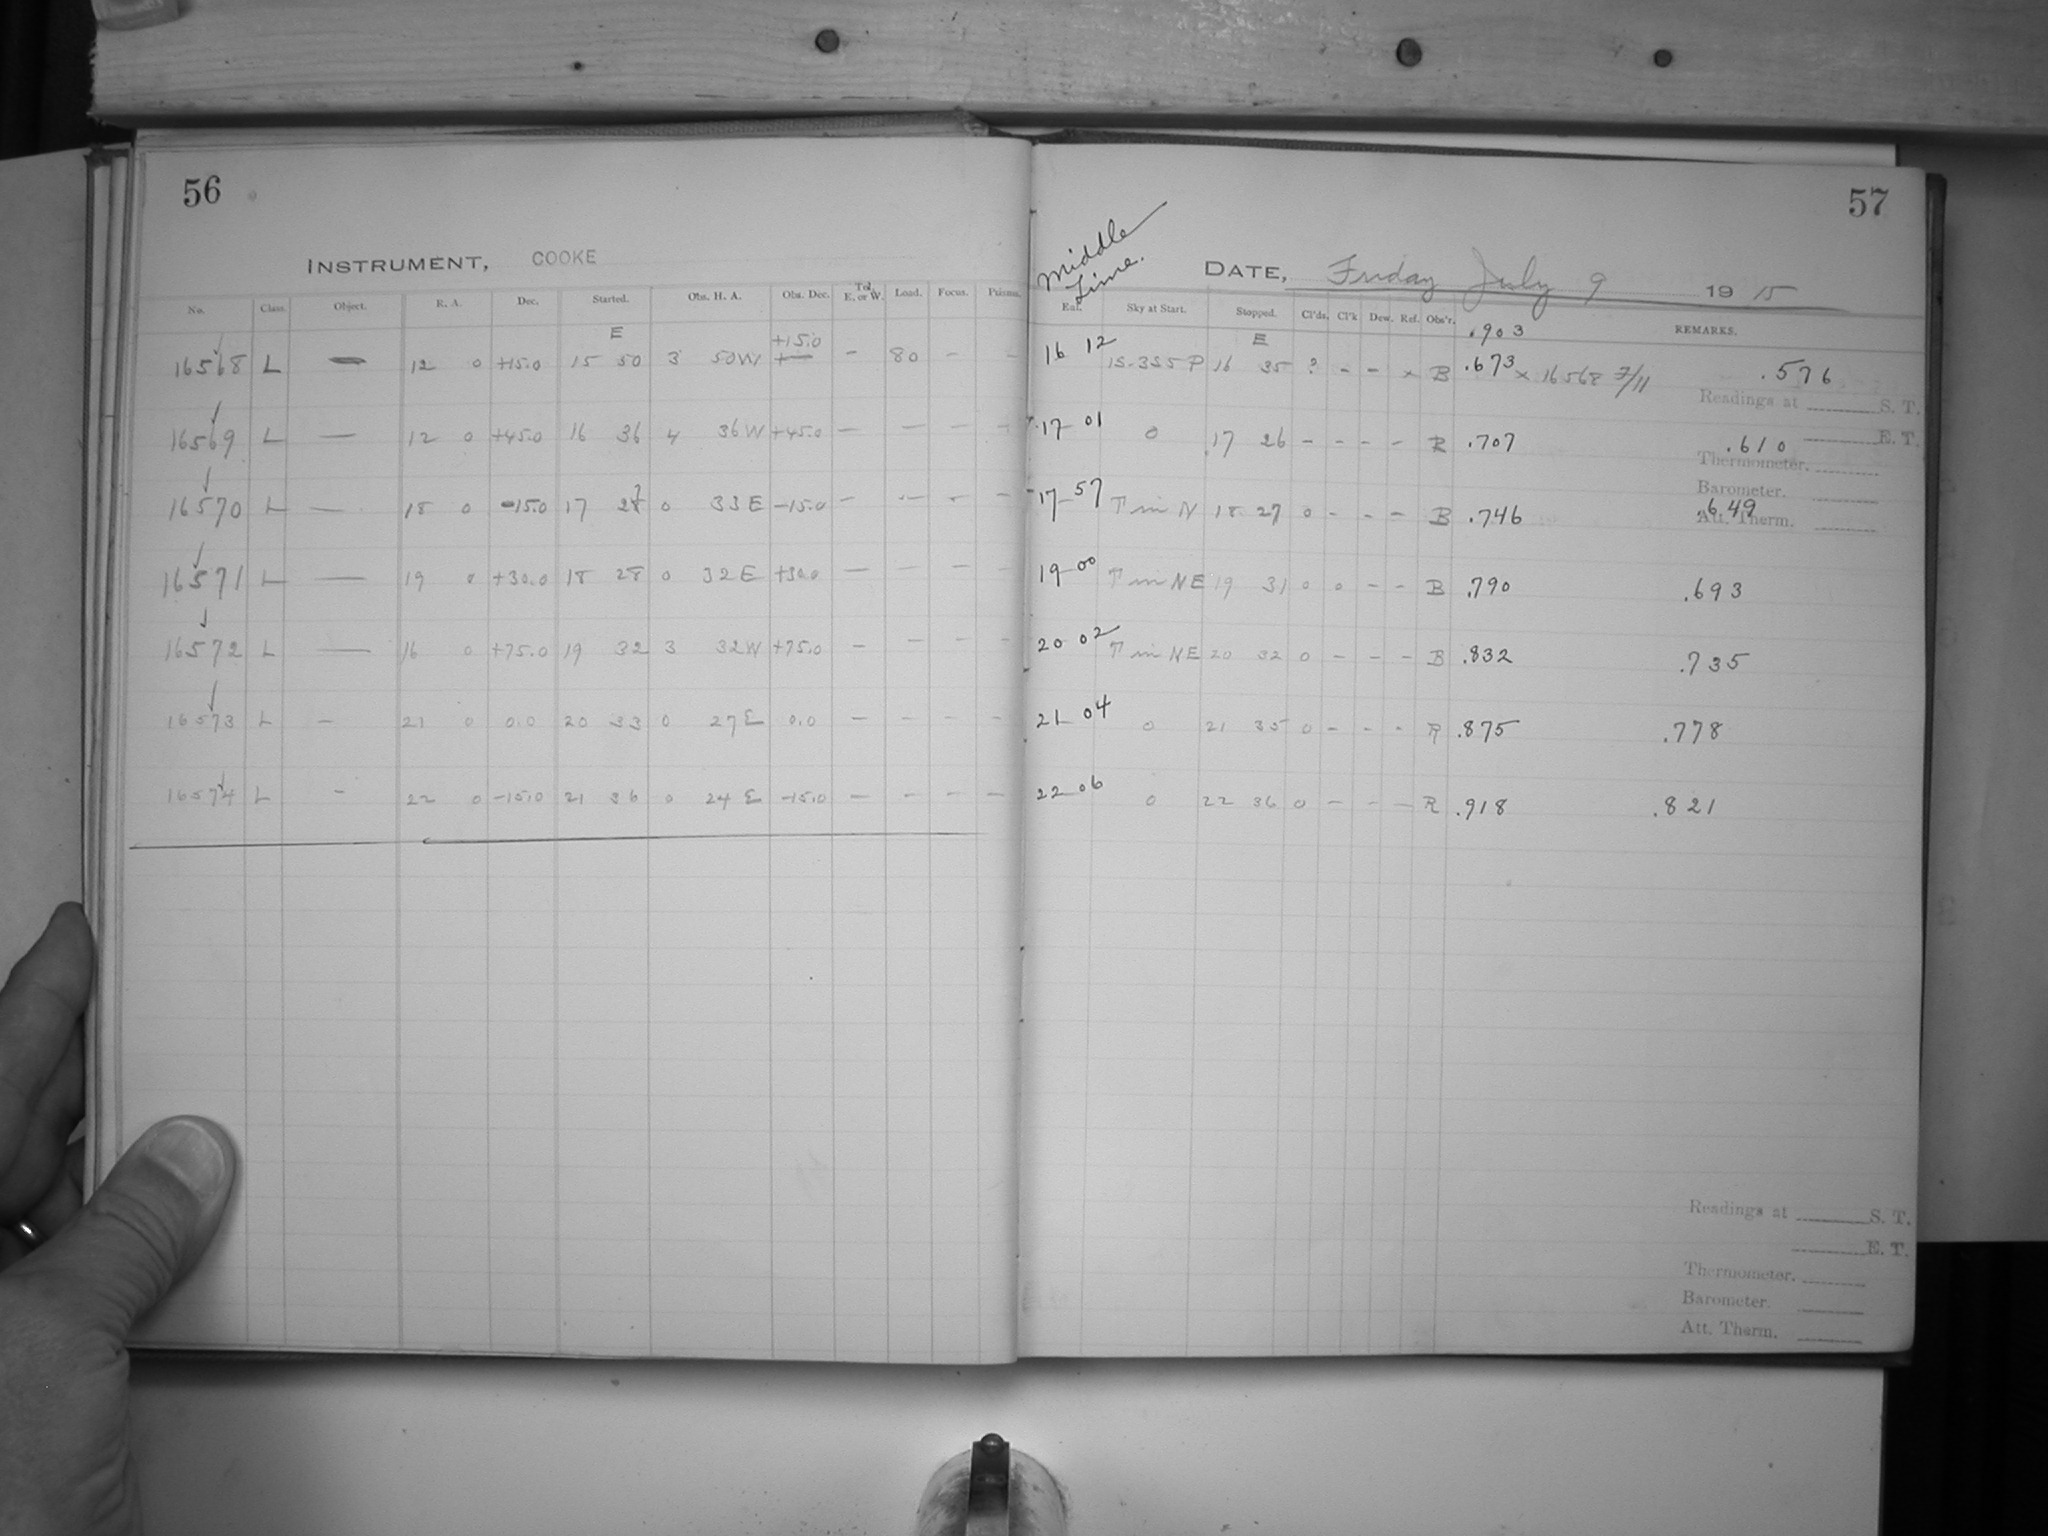 56
INSTRUMENT, COOKE
No. Class. Object. R. A. Dec. Started. Obs. H. A. Obs. Dec. Tel. E. or W. Load. Focus. Prisms.
E
+15.0
16568 L — 12 0 +15.0 15 50 3 50W — 80 — —
16569 L — 12 0 +45.0 16 36 4 36W +45.0 — — — —
16570 L — 18 0 -15.0 17 0 33E -15.0 — — — —
16571 L — 19 0 +30.0 18 28 0 32E +30.0 — — — —
16572 L — 16 0 +75.0 19 32 3 32W +75.0 — — — —
16573 L — 21 0 0.0 20 33 0 27E 0.0 — — — —
16574 L — 22 0 -15.0 21 36 0 24E -15.0 — — — —
57
Middle
Time.
DATE, Friday July 9 1915
Ent. Sky at Start. Stopped. Cl'ds. Cl'k Dew. Ref. Obs'r. REMARKS.
E
.903
16 12 16 35 ? - - x B .673 x 16568 7/11 .576
Readings at S. T.
17-01 0 17 26 - - - - R .707 .610
E. T.
Thermometer.
Barometer.
17-57 T in N 18 27 0 - - - B .746 .649
Att. Therm.
19-00 T in NE 19 31 0 0 - - B .790 .693
20-02 T in NE 20 32 0 - - - B .832 .735
21-04 0 21 35 0 - - - R .875 .778
22-06 0 22 36 0 - - - R .918 .821
Readings at S. T.
E. T.
Thermometer.
Barometer.
Att. Therm.